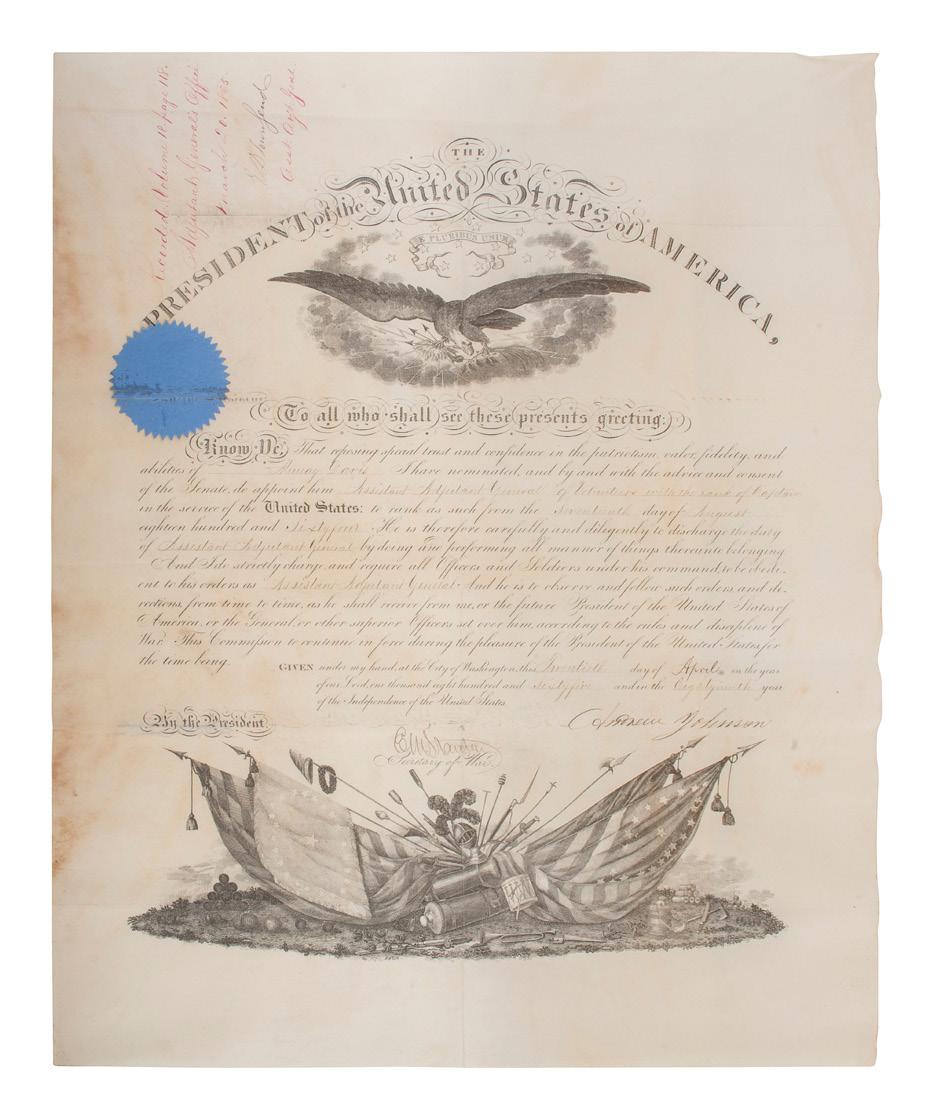 Record d Volume 18 page 118.
Adjutant General's Office
March 20. 1865.
Townsend
Asst Adjt Genl.
THE
PRESIDENT of the United States of AMERICA,
E PLURIBUS UNUM
To all who shall see these presents greeting:
Know Ye, That reposing special trust and confidence in the patriotism, valor, fidelity, and
abilities of Davis I have nominated, and by and with the advice and consent
of the Senate, do appoint him Assistant Adjutant General of Volunteers with the rank of Captain
in the service of the United States: to rank as such from the day of August
eighteen hundred and sixty four He is therefore carefully and diligently to discharge the duty
of Assistant Adjutant General by doing and performing all manner of things thereunto belonging.
And I do strictly charge, and require all Officers and Soldiers under his command, to be obedi-
ent to his orders as Assistant Adjutant General And he is to observe and follow such orders, and di-
rections, from time to time, as he shall receive from me, or the future President of the United States of
America, or the General, or other superior Officers set over him, according to the rules and discipline of
War. This Commission to continue in force during the pleasure of the President of the United States, for
the time being.
GIVEN under my hand, at the City of Washington, this Twentieth day of April in the year
of our Lord, one thousand eight hundred and sixty five and in the Eighty ninth year
of the Independence of the United States.
By the President
Andrew Johnson
Secretary of War.